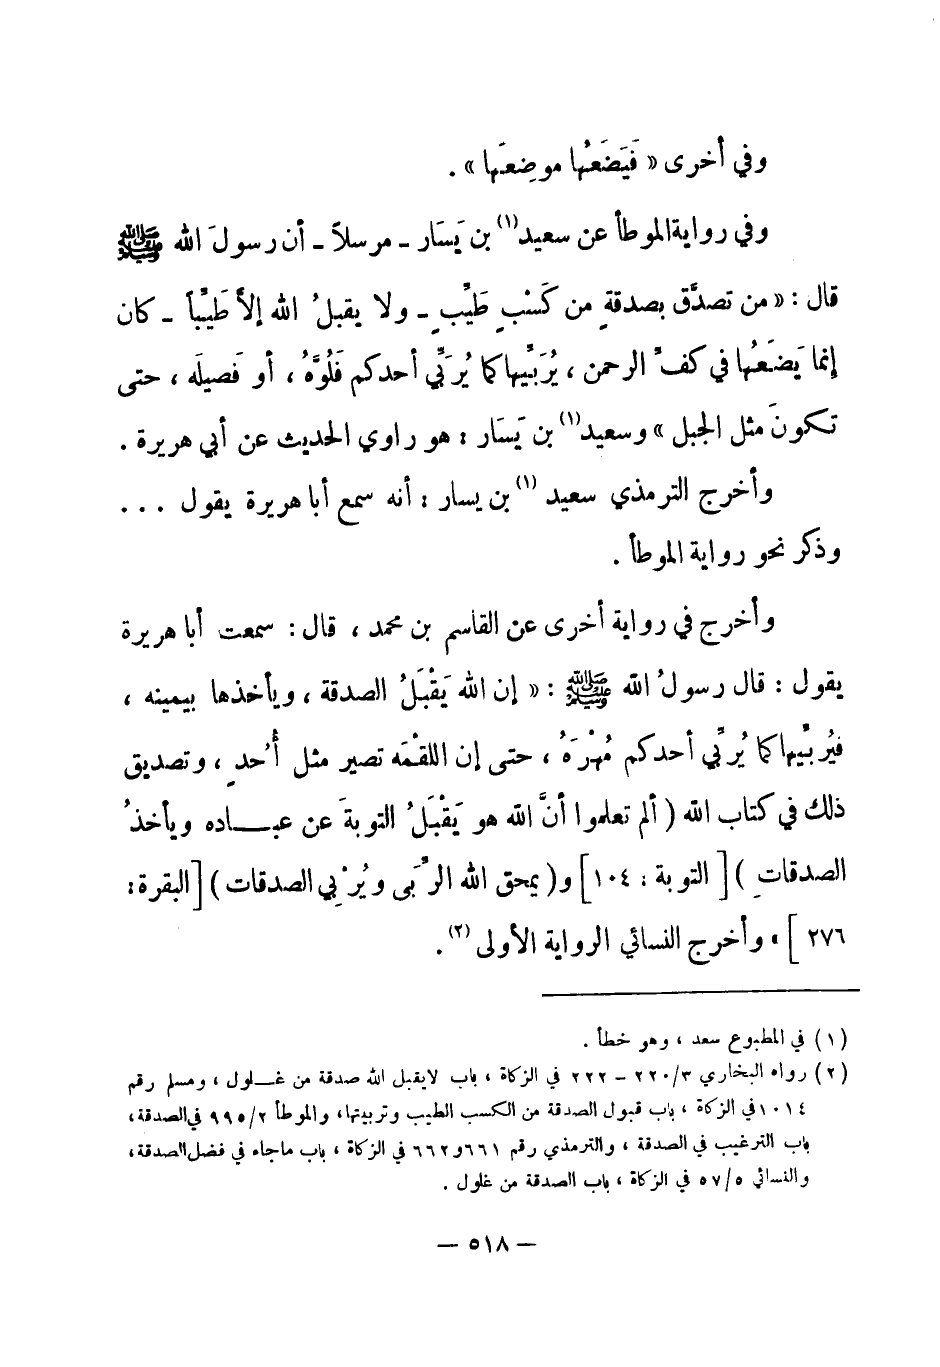 وفي أخرى « فَيَضَعُها موضِعَها » .
وفي روايةالموطأ عن سعيد(١) بن يَسَار ـ مرسلاً ـ أن رسولَ الله ﷺ
قال : « من تصدَّق بصدقةٍ من كَسْبٍ طَيِّبٍ ـ ولا يقبلُ الله إلاَّ طَيِّباً ـ كان
إنما يَضَعُها في كفِّ الرحمن ، يُرَبِّيها كما يُرَبِّي أحدكم فَلُوَّهُ ، أو فَصيلَه ، حتى
تكونَ مثل الجبل » وسعيد(١) بن يَسَار : هو راوي الحديث عن أبي هريرة .
وأخرج الترمذي سعيد (١) بن يسار : أنه سمع أبا هريرة يقول ...
وذكر نحو رواية الموطأ .
وأخرج في رواية أخرى عن القاسم بن محمد ، قال : سمعت أبا هريرة
يقول : قال رسولُ الله ﷺ : « إن الله يَقْبَلُ الصدقة ، ويأخذها بيمينه ،
فيُرَبِّيها كما يُربِّي أحدكم مُهْرَهُ ، حتى إن اللقْمَه تصير مثل أُحدٍ ، وتصديق
ذلك في كتاب الله ( ألم تعلموا أنَّ الله هو يَقْبَلُ التوبةَ عن عبـــاده ويأخذُ
الصدقاتِ ) [ التوبة : ١٠٤ ] و( يمحق الله الرِّبى ويُرْبِي الصدقات ) [ البقرة :
٢٧٦ ] » وأخرج النسائي الرواية الأولى (٢) .
(١) في المطبوع سعد ، وهو خطأ .
(٢) رواه البخاري ٢٢٠/٣ ــ ٢٢٢ في الزكاة ، باب لايقبل الله صدقة من غـــلول ، ومسلم رقم
١٠١٤في الزكاة ، باب قبول الصدقة من الكسب الطيب وتربيتها، والموطأ ٩٩٥/٢ في الصدقة،
باب الترغيب في الصدقة ، والترمذي رقم ٦٦١و٦٦٢ في الزكاة ، باب ماجاء في فضل الصدقة،
والنسائي ٥٧/٥ في الزكاة ، باب الصدقة من غلول .
ــ ٥١٨ ــ